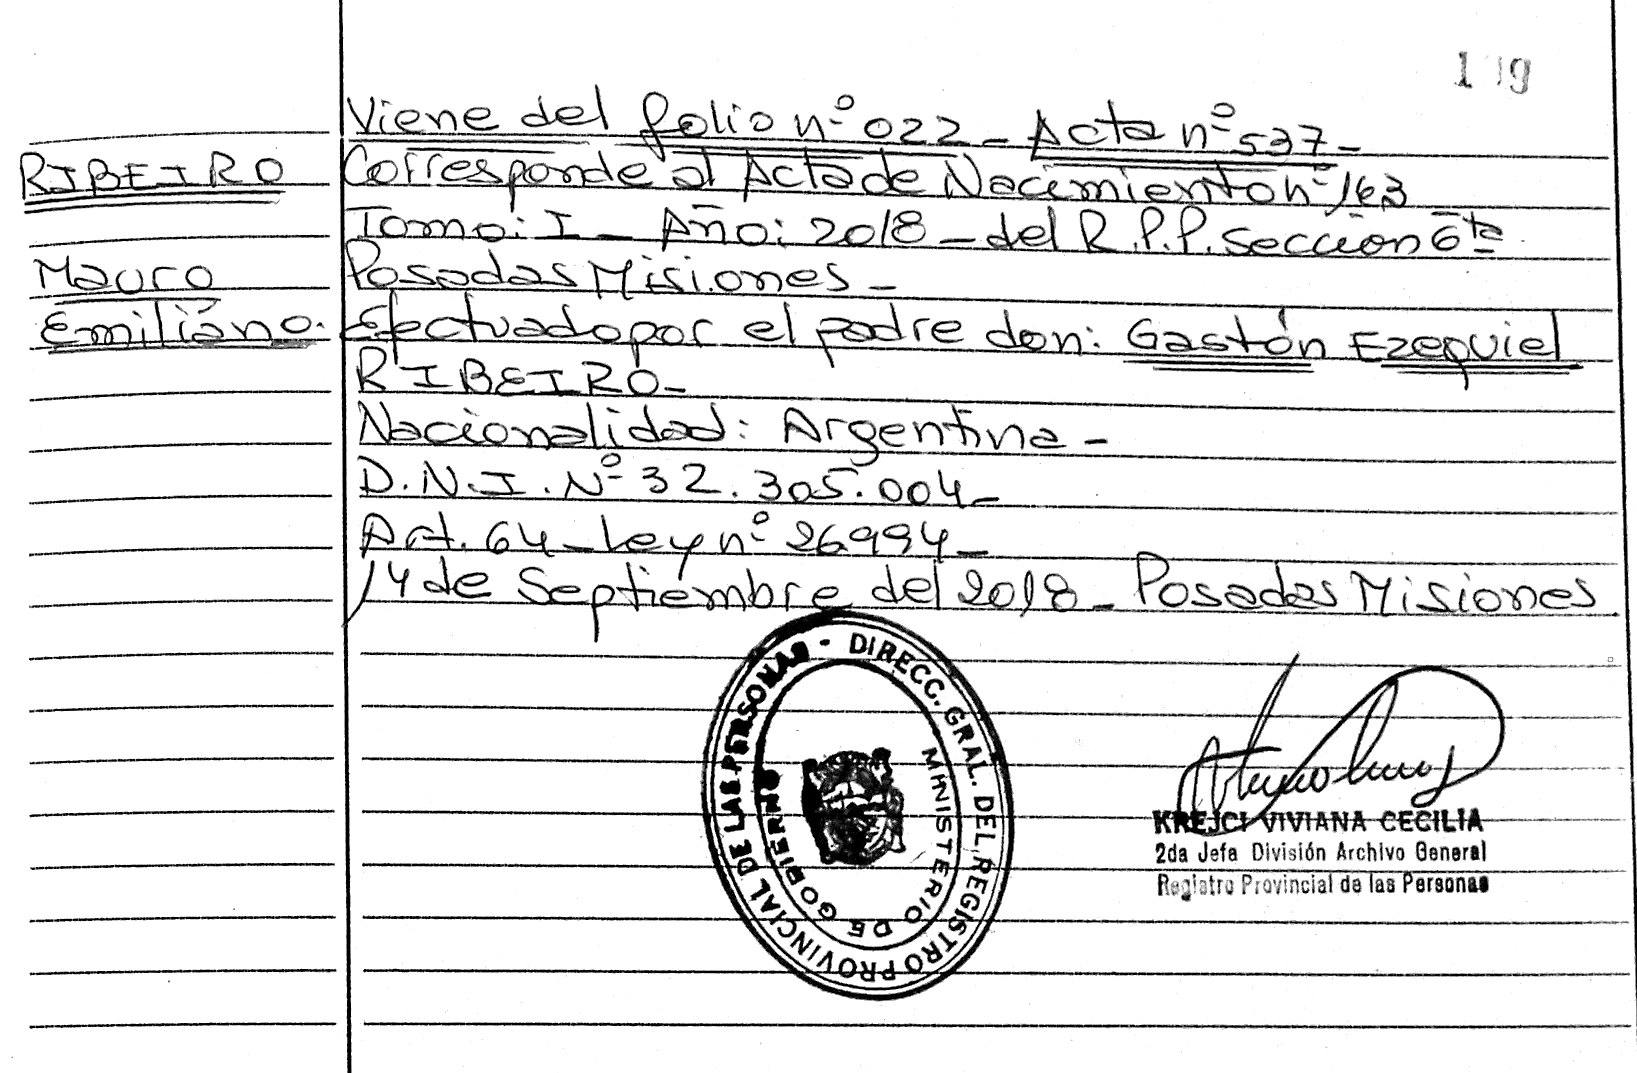 Viene del folio nº 022 - Acta nº 537 -
RIBEIRO
Corresponde al Acta de Nacimiento nº 163
Tomo: I - Año: 2018 - del R.P.P. sección 6ta
Mauro
Posadas Misiones -
Emiliano.
Efectuado por el padre don: Gastón Ezequiel
RIBEIRO -
Nacionalidad: Argentina -
D.N.I. Nº 32.305.004 -
Art. 64 - Ley nº 26994 -
14 de Septiembre del 2018 - Posadas Misiones
DIRECC. GRAL. DEL REGISTRO PROVINCIAL DE LAS PERSONAS -
MINISTERIO DE GOBIERNO
KREJCI VIVIANA CECILIA
2da Jefa División Archivo General
Registro Provincial de las Personas